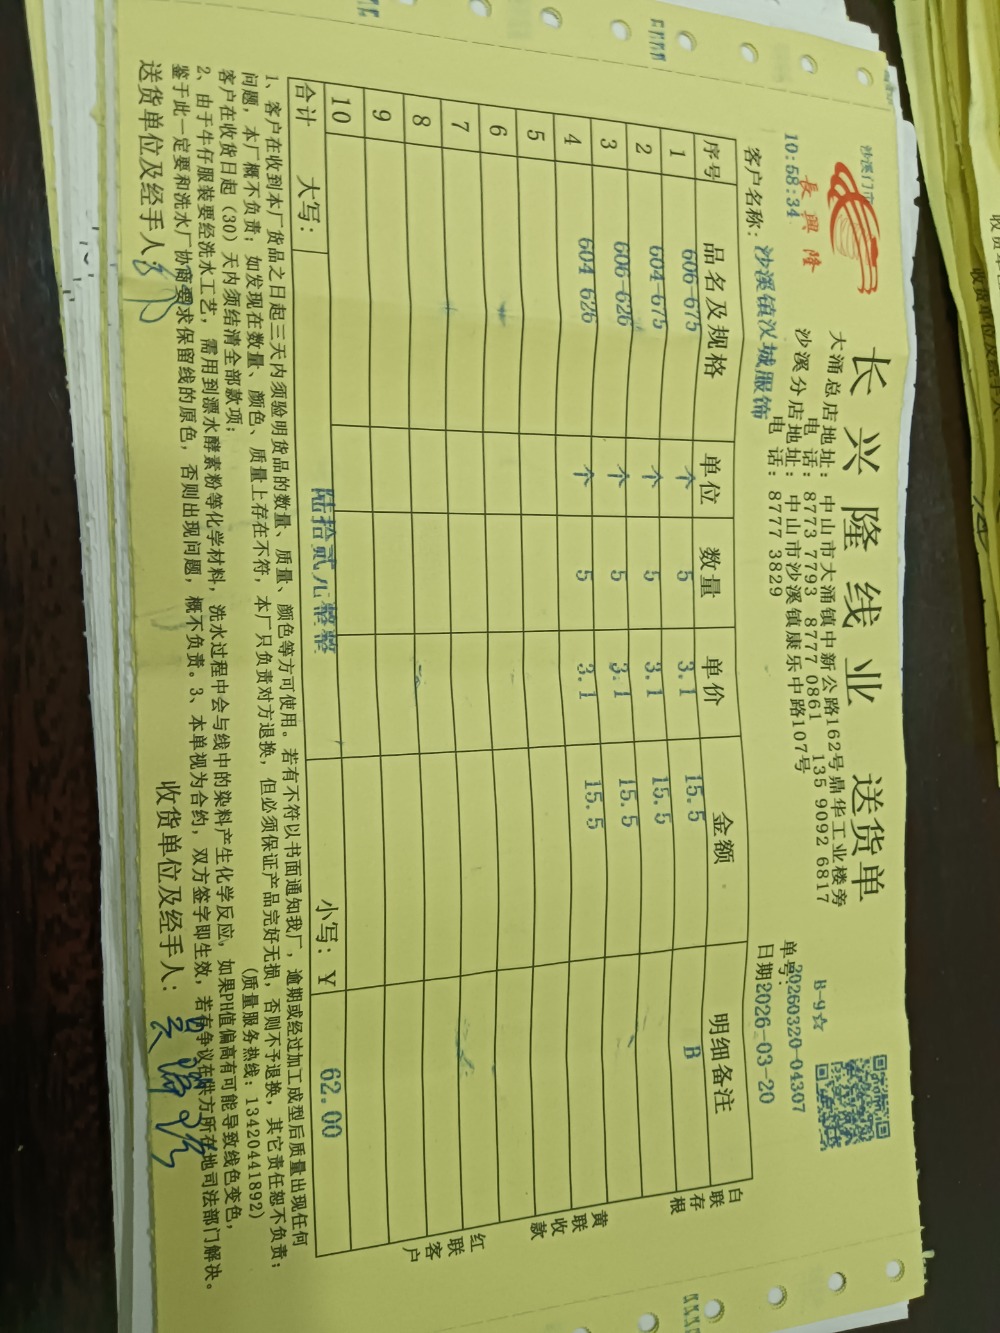 沙溪门市
長興隆
10:58:34
长兴隆线业 送货单
大涌总店地址：中山市大涌镇中新公路162号鼎华工业楼旁
电话：8773 7793 8777 0861 135 9092 6817
沙溪分店地址：中山市沙溪镇康乐中路107号
电话：8777 3829
B-9☆
单号：20260320-04307
客户名称：沙溪镇汉城服饰 日期2026-03-20
序号 品名及规格 单位 数量 单价 金额 明细备注
1 606-675 个 5 3.1 15.5 B
2 604-675 个 5 3.1 15.5
3 606-626 个 5 3.1 15.5
4 604 626 个 5 3.1 15.5
5
6
7
8
9
10
合计 大写：陆拾贰元整整 小写：¥ 62.00
白联存根
黄联收款
红联客户
1、客户在收到本厂货品之日起三天内须验明货品的数量、质量、颜色等方可使用。若有不符以书面通知我厂，逾期或经过加工成型后质量出现任何
问题，本厂概不负责；如发现在数量、颜色、质量上存在不符，本厂只负责对方退换，但必须保证产品完好无损，否则不予退换，其它责任恕不负责；
客户在收货日起（30）天内须结清全部款项； (质量服务热线：13420441892)
2、由于牛仔服装要经洗水工艺，需用到漂水酵素粉等化学材料，洗水过程中会与线中的染料产生化学反应，如果PH值偏高有可能导致线色变色，
鉴于此一定要和洗水厂协商要求保留线的原色，否则出现问题，概不负责。3、本单视为合约，双方签字即生效，若有争议在供方所在地司法部门解决。
送货单位及经手人： 收货单位及经手人：